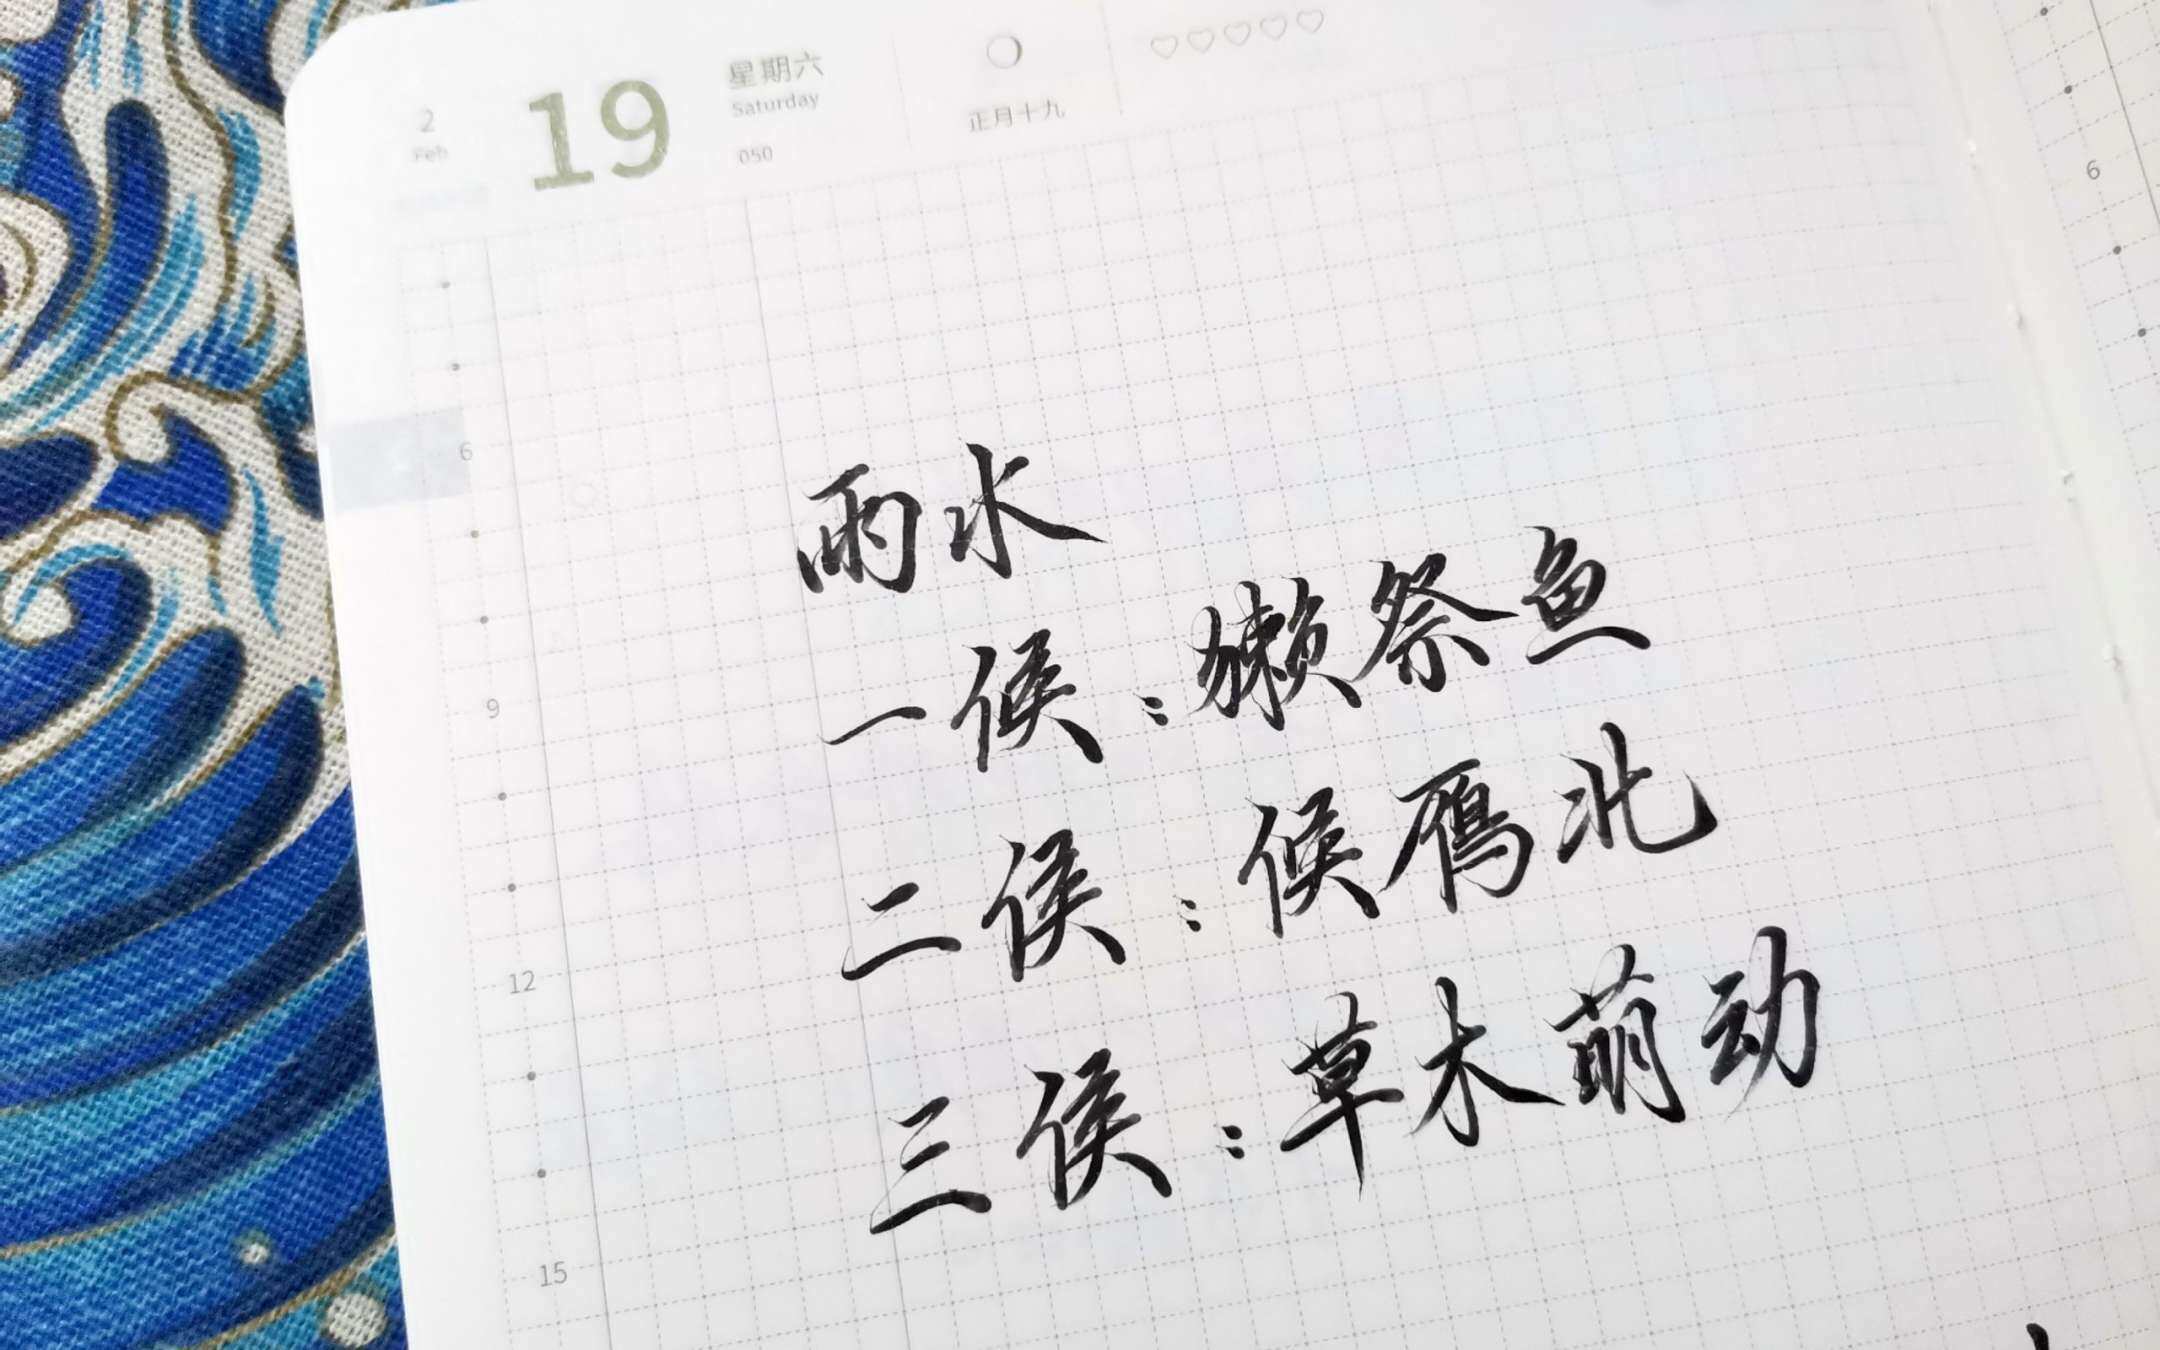 2
Feb
19
星期六
Saturday
050
正月十九
雨水
一候：獭祭鱼
二候：候雁北
三候：草木萌动
6
9
12
15
6